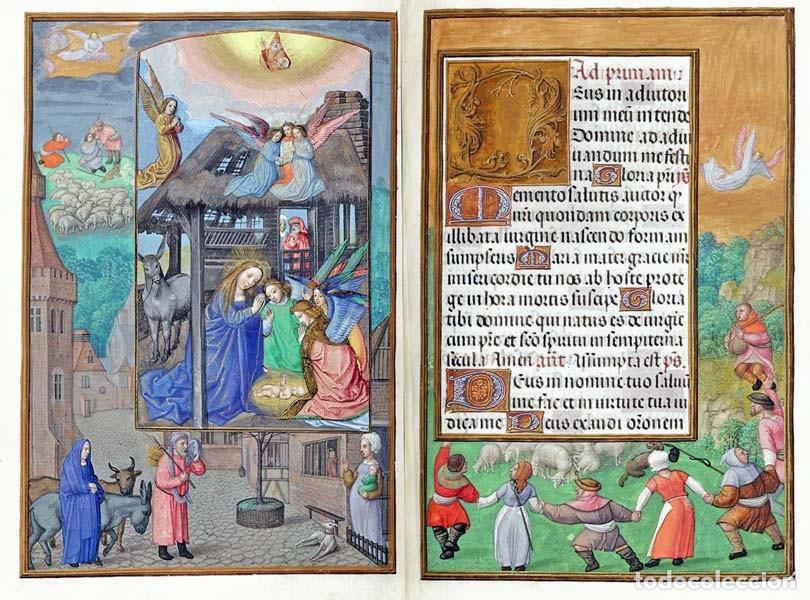 Ad primam
Eus in adiutori
um meū intende
Domine ad adiu
uandum me festi
na Gloria pr̄i ps
Memento salutis auctor q
nr̄i quondam corporis ex
illibata uirgine nascendo formam
sumpseris Maria mater gracie mr̄
misericordie tu nos ab hoste prote
ge in hora mortis suscipe Gloria
tibi domine qui natus es de uirgie
cum pr̄e et sc̄o spiritu in sempiterna
secula Amen ant. Assumpta est ps
Deus in nomine tuo saluū
me fac et in uirtute tua iu
dica me Deus exaudi orōnem
todocoleccion